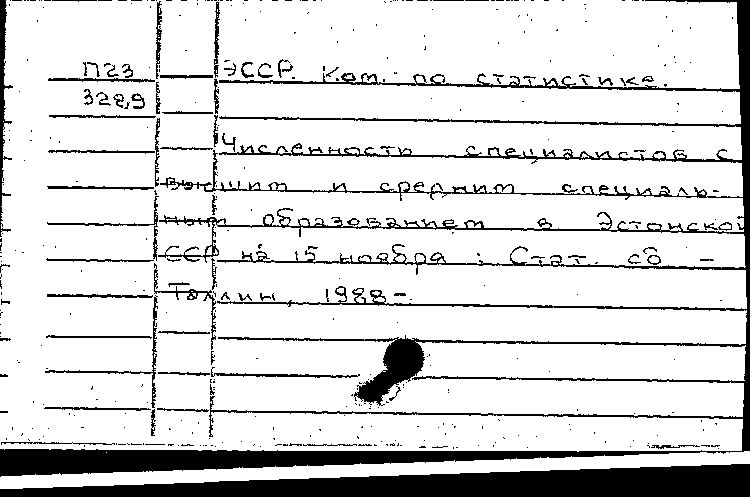 П23 ЭССР. Ком. по статистике.
3289
Численность специалистов с
высшим и средним специаль-
ным образованием в Эстонской
ССР на 15 ноября : Стат. сб -
Таллин, 1988-